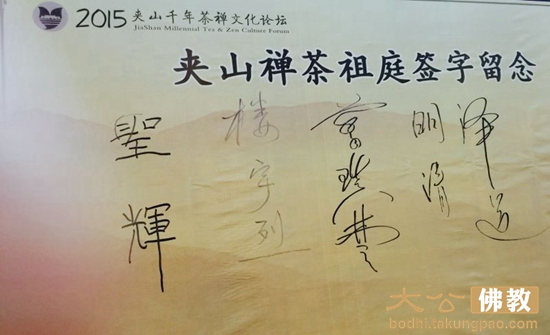 2015夹山千年茶禅文化论坛
JiaShan Millennial Tea & Zen Culture Forum
夹山禅茶祖庭签字留念
聖輝
楼宇烈
明
泽道
大公佛教
bodhi.takungpao.com